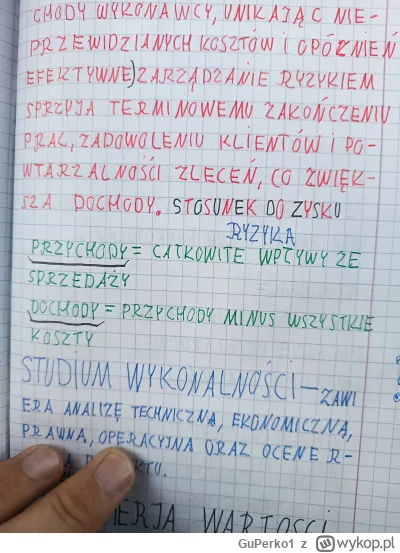 CHODY WYKONAWCY, UNIKAJĄC NIE-
PRZEWIDZIANYCH KOSZTÓW I OPÓŹNIEŃ
EFEKTYWNE ZARZĄDZANIE RYZYKIEM
SPRZYJA TERMINOWEMU ZAKOŃCZENIU
PRAC, ZADOWOLENIU KLIENTÓW I PO-
WTARZALNOŚCI ZLECEŃ, CO ZWIĘK-
SZA DOCHODY. STOSUNEK DO ZYSKU
RYZYKA
PRZYCHODY = CAŁKOWITE WPŁYWY ZE
SPRZEDAŻY
DOCHODY = PRZYCHODY MINUS WSZYSTKIE
KOSZTY
STUDIUM WYKONALNOŚCI - ZAWI
ERA ANALIZĘ TECHNICZNĄ, EKONOMICZNĄ,
PRAWNĄ, OPERACYJNĄ ORAZ OCENE R-
WARTOŚCI
GuPerko1 z wykop.pl